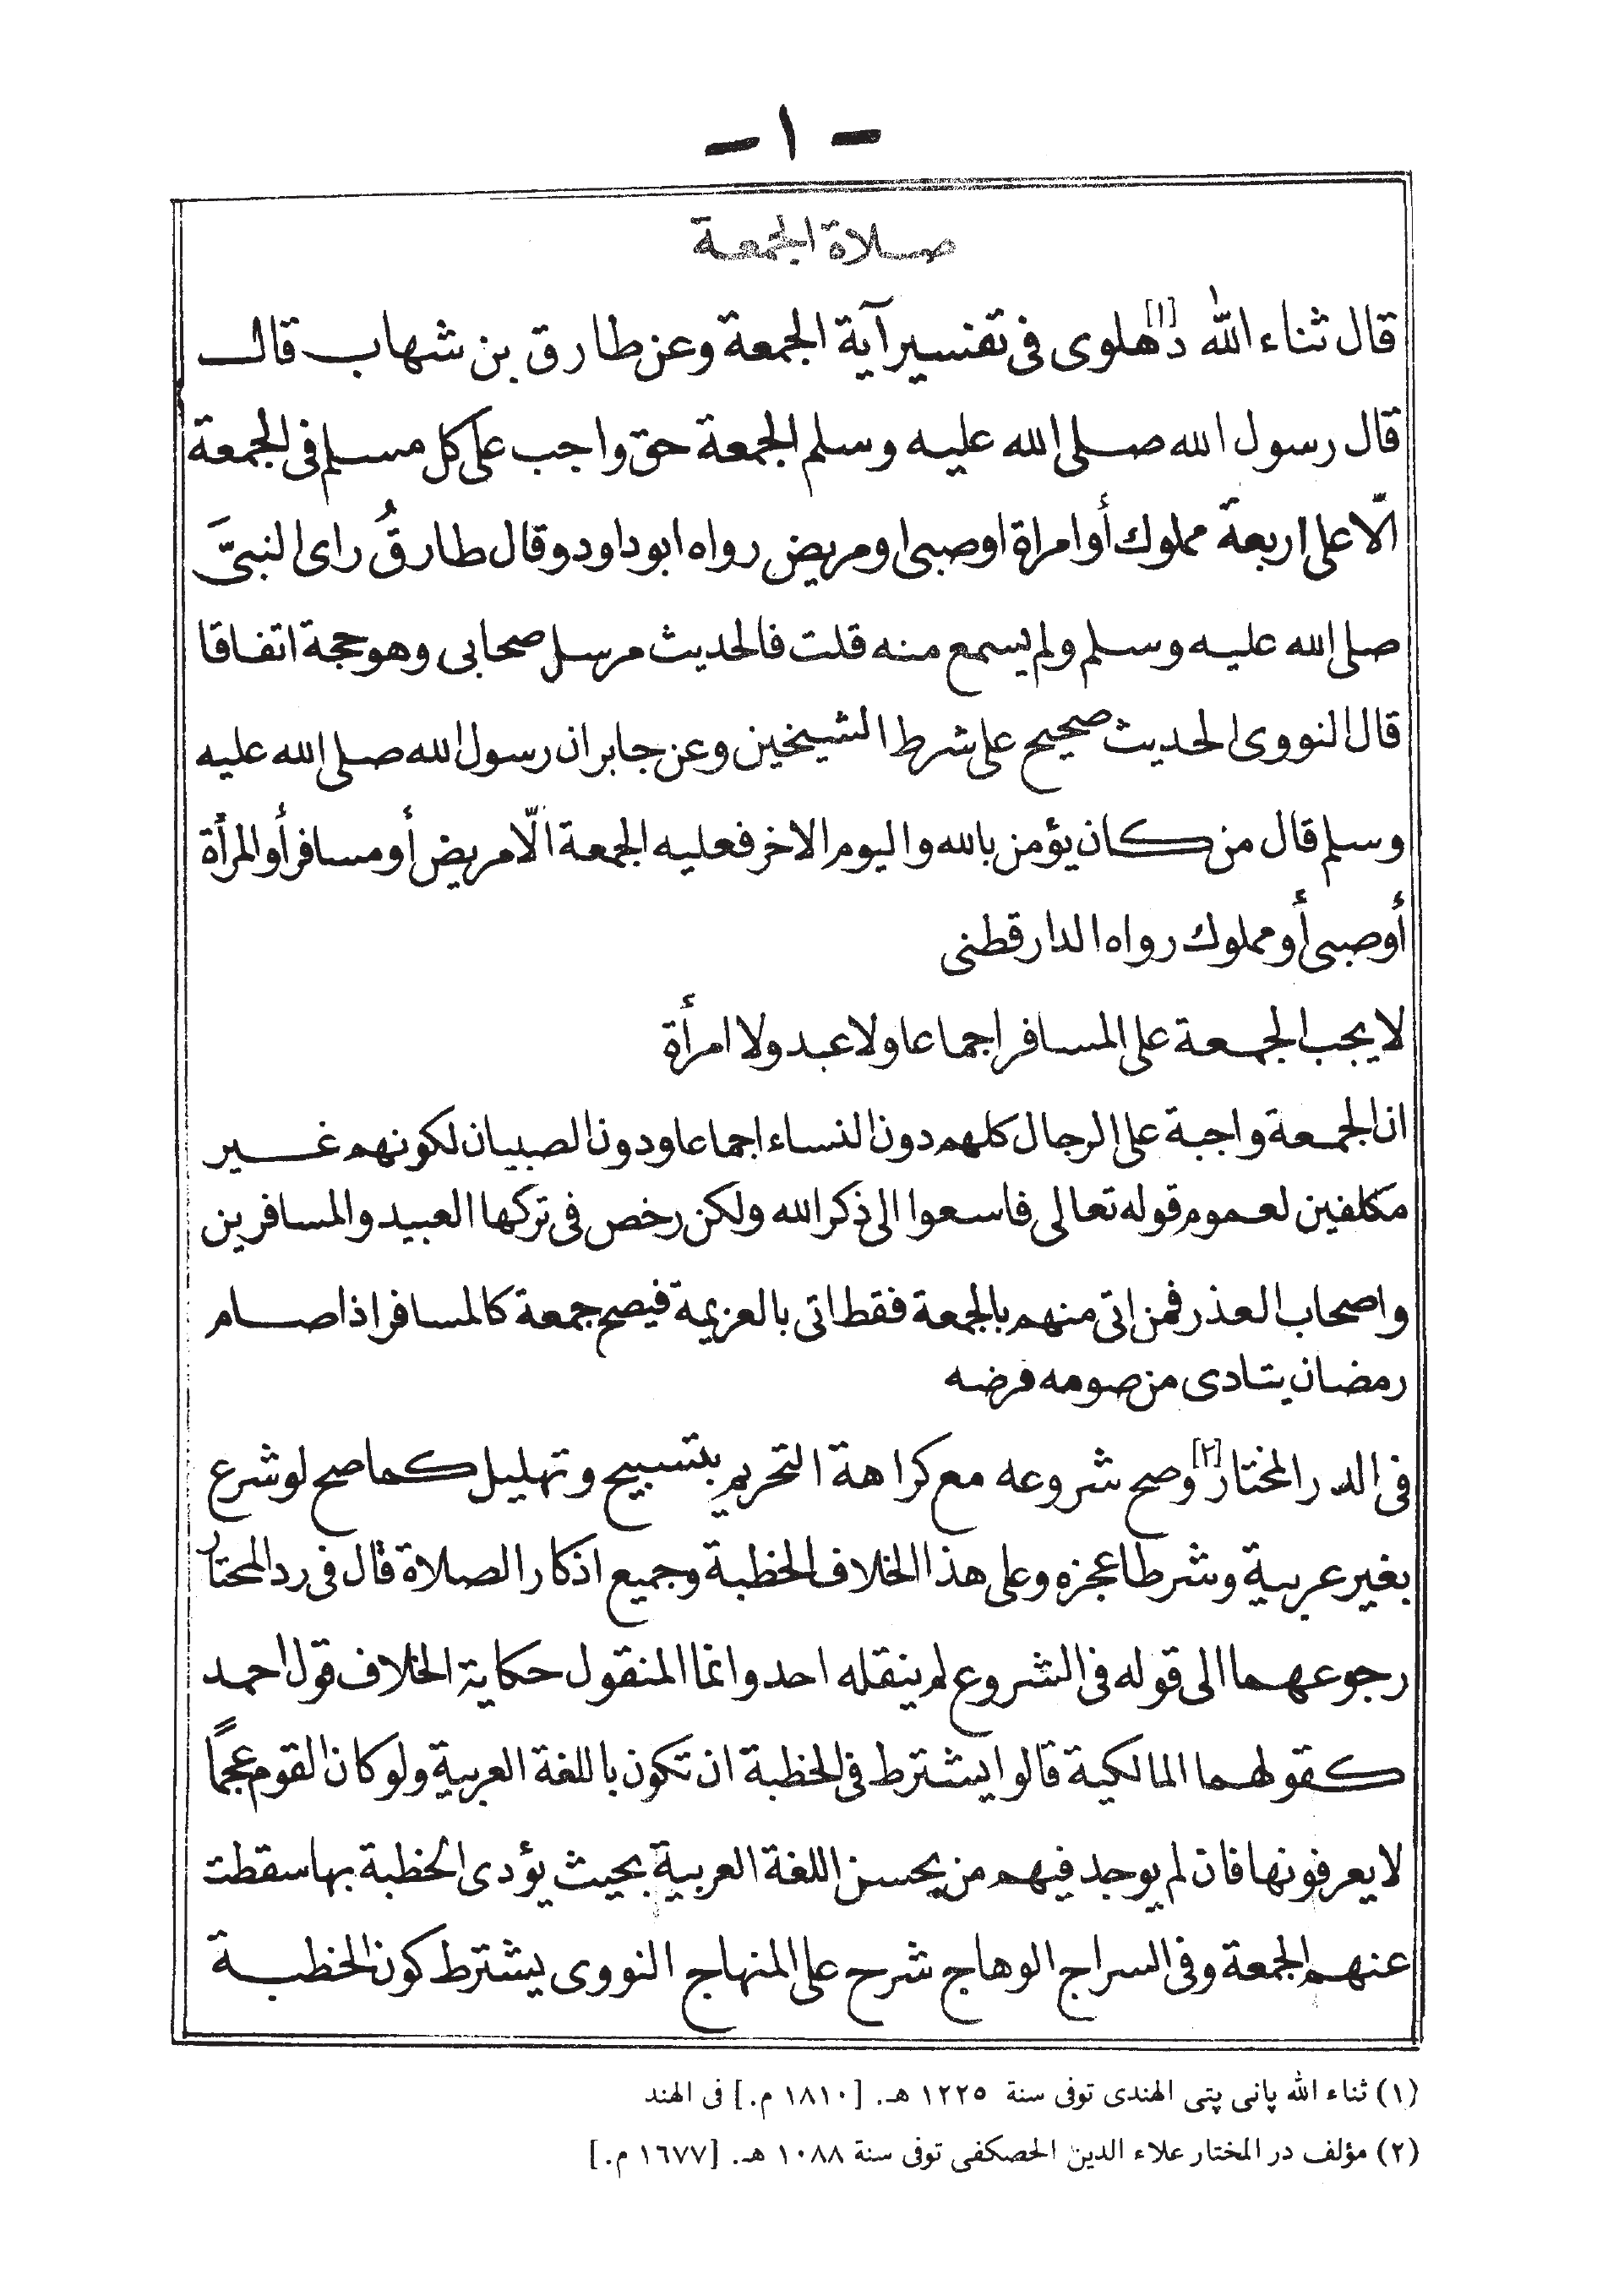 - ١ -
صلاة الجمعة
قال ثناء الله دهلوى [١] فى تفسير آية الجمعة وعن طارق بن شهاب قال
قال رسول الله صلى الله عليه وسلم الجمعة حق واجب على كل مسلم فى الجمعة
الّا على اربعة مملوك أو امراة او صبى او مريض رواه ابو داود وقال طارقُ راى النبىَّ
صلى الله عليه وسلم ولم يسمع منه قلت فالحديث مرسل صحابى وهو حجة اتفاقا
قال النووى الحديث صحيح على شرط الشيخين وعن جابر ان رسول الله صلى الله عليه
وسلم قال من كان يؤمن بالله واليوم الاخر فعليه الجمعة الّا مريض أو مسافر أو المرأة
أو صبى أو مملوك رواه الدارقطنى
لا يجب الجمعة على المسافر اجماعا ولا عبد ولا امرأة
ان الجمعة واجبة على الرجال كلهم دون النساء اجماعا ودون الصبيان لكونهم غير
مكلفين لعموم قوله تعالى فاسعوا الى ذكر الله ولكن رخص فى تركها العبيد والمسافرين
واصحاب العذر فمن اتى منهم بالجمعة فقط اتى بالعزيمة فيصح جمعة كالمسافر اذا صام
رمضان يتادى من صومه فرضه
فى الدر المختار [٢] وصح شروعه مع كراهة التحريم بتسبيح وتهليل كما صح لو شرع
بغير عربية وشرطا عجزه وعلى هذا الخلاف الخطبة وجميع اذكار الصلاة قال فى رد المحتار
رجوعهما الى قوله فى الشروع لم ينقله احد وانما المنقول حكاية الخلاف قول احمد
كقولهما المالكية قالوا يشترط فى الخطبة ان تكون باللغة العربية ولو كان القوم عجمًا
لا يعرفونها فان لم يوجد فيهم من يحسن اللغة العربية بحيث يؤدى الخطبة بها سقطت
عنهم الجمعة وفى السراج الوهاج شرح على المنهاج النووى يشترط كون الخطبة
(١) ثناء الله پانى پتى الهندى توفى سنة ١٢٢٥ هـ. [١٨١٠ م.] فى الهند
(٢) مؤلف در المختار علاء الدين الحصكفى توفى سنة ١٠٨٨ هـ. [١٦٧٧ م.]